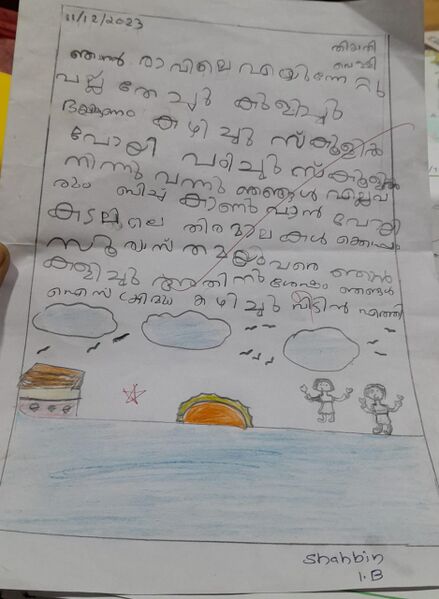 11/12/2023
തിയതി
ഞാൻ രാവിലെ എഴുന്നേറ്റു
പല്ല് തേച്ചു കുളിച്ചു
ഭക്ഷണം കഴിച്ചു സ്കൂളിൽ
പോയി പഠിച്ചു സ്കൂളിൽ
നിന്നു വന്നു ഞങ്ങൾ എല്ലാവ
രും ബീച്ച് കാണുവാൻ പോയി
കടലിലെ തിരമാലകൾക്കൊപ്പം
സൂര്യാസ്തമയംവരെ ഞാൻ
കളിച്ചു അതിനുശേഷം ഞങ്ങൾ
ഐസ്ക്രീം കഴിച്ചു വീട്ടിൽ എത്തി
Shahbin
1.B